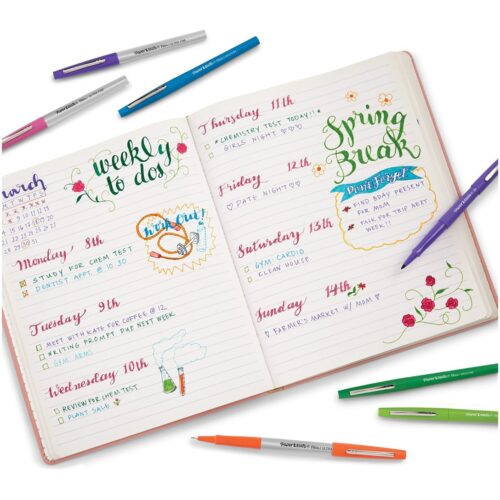 Paper Mate
Paper Mate
Paper Mate
March
weekly
to dos
work out!
Monday, 8th
STUDY FOR CHEM TEST
DENTIST APPT. @ 10:30
Tuesday 9th
MEET WITH KATE FOR COFFEE @ 12
WRITING PROMPT DUE NEXT WEEK
GYM: ARMS
Wednesday 10th
REVIEW FOR CHEM TEST
PLANT SALE
Thursday 11th
*CHEMISTRY TEST TODAY!!*
GIRLS NIGHT
Friday 12th
DATE NIGHT
Saturday 13th
GYM: CARDIO
CLEAN HOUSE
Sunday 14th
FARMER'S MARKET W/ MOM
Spring
Break
Don't Forget
FIND BDAY PRESENT
FOR MOM
TALK FOR TRIP NEXT
WEEK!!
Paper Mate
Paper Mate
Paper Mate
Paper Mate